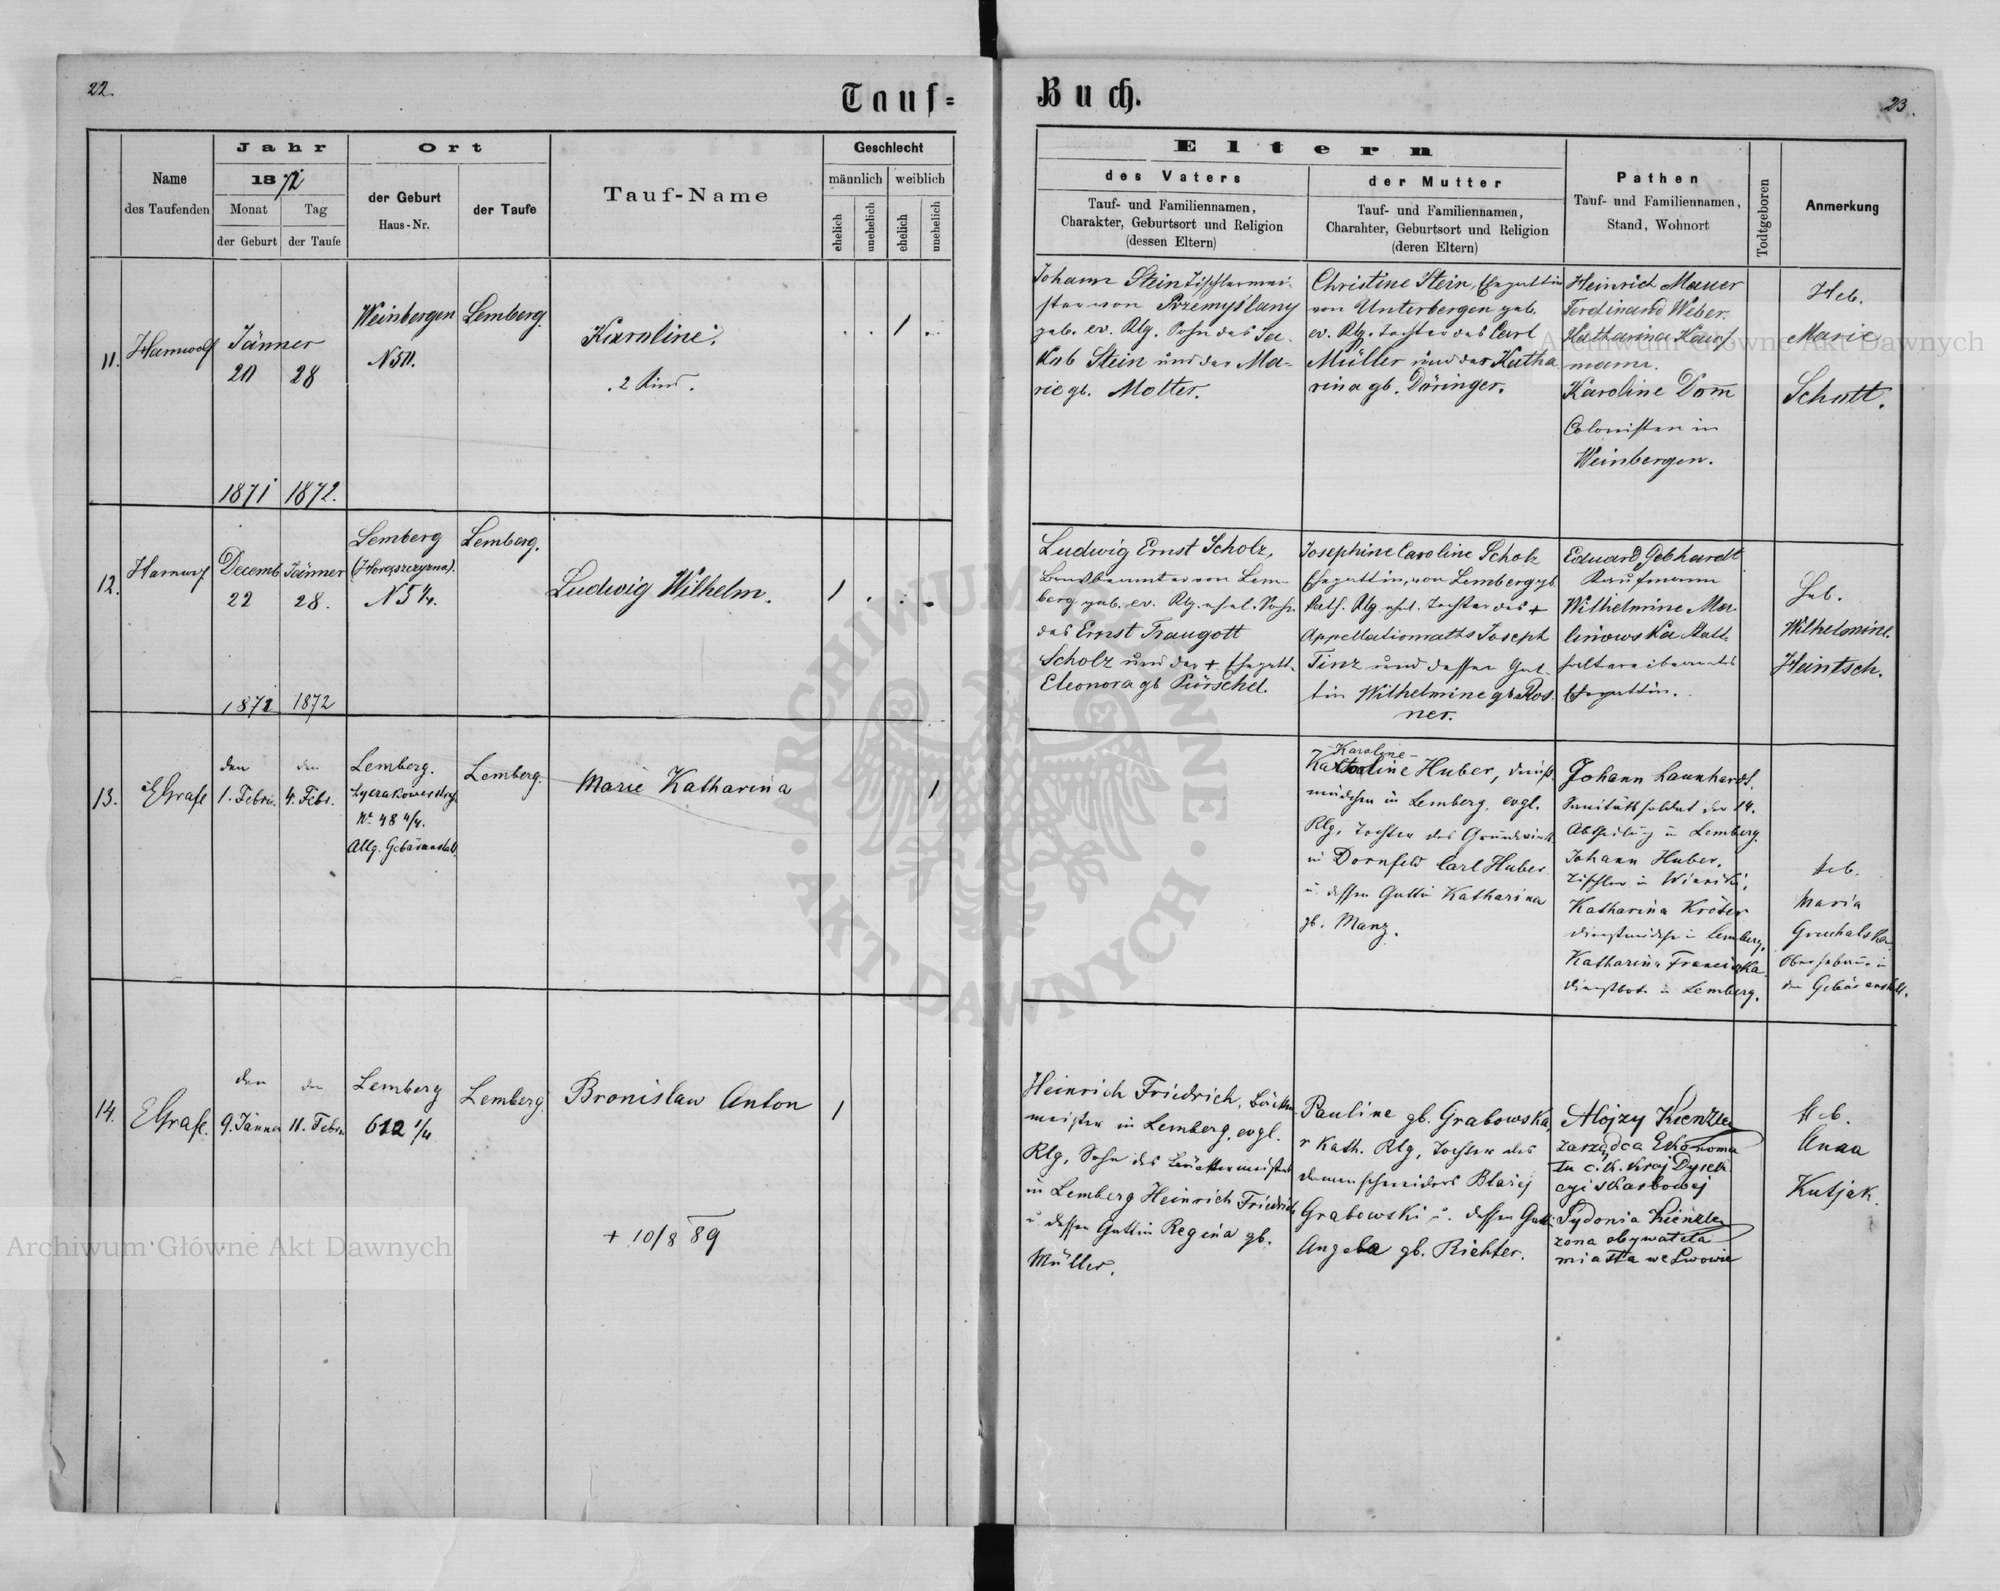 22.
Tauf=
Buch.
23.
Name
des Taufenden
Jahr
1872
Monat
der Geburt
Tag
der Taufe
Ort
der Geburt
Haus-Nr.
der Taufe
Tauf-Name
Geschlecht
männlich
weiblich
ehelich
unehelich
ehelich
unehelich
Eltern
des Vaters
Tauf- und Familiennamen,
Charakter, Geburtsort und Religion
(dessen Eltern)
der Mutter
Tauf- und Familiennamen,
Charahter, Geburtsort und Religion
(deren Eltern)
Pathen
Tauf- und Familiennamen,
Stand, Wohnort
Todtgeboren
Anmerkung
11.
Jänner
28
Weinbergen
Lemberg.
Karoline.
. 2 Kind.
1
Johann Stein Tischlermei-
ster von Przemyslany
geb. ev. Rlg. Sohn des Ja-
kob Stein und der Ma-
rie gb. Motter.
Christine Stein, Ehegattin
von Unterbergen geb.
ev. Rlg. Tochter des Carl
Müller und der Katha
rina gb. Döringer.
Heinrich Mauer
Ferdinand Weber.
Katharina Kauf
mann.
Karoline Dom
Colonisten in
Weinbergen.
Heb.
Marie
Schott.
1871
1872.
12.
Decemb
22
Jänner
28.
Lemberg
Lemberg.
Ludwig Wilhelm.
1
Ludwig Ernst Scholz,
von Lem-
berg geb. ev. Rlg. ehel. Sohn
des Ernst Traugott
Scholz und der + Ehegatt.
Eleonora gb Pürschel.
Josephine Caroline Scholz
Ehegattin, von Lemberg gb.
Kath. Rlg. ehel. Tochter des +
Appellationraths Joseph
Tinz und dessen Gat-
tin Wilhelmine gb Ros-
ner.
Eduard Gebhardt
Kaufmann
Wilhelmine Ma-
linowska Statt-
haltereibeamtes
Ehegattin.
Heb.
Wilhelmine
Heintsch.
1872
1872
13.
EGrafe
den
1. Febru.
den
4. Febr.
Lemberg.
Lyczakowerstraß
Nr 48 4/4.
Allg. Gebäranstalt.
Lemberg.
Marie Katharina
1
Karoline
Huber, Dienst
mädchen in Lemberg, evgl.
Rlg, Tochter des Grundwirth
in Dornfeld Carl Huber
u. dessen Gattin Katharina
gb. Manz.
Johann Launhardt.
Sanitätssoldat der 14.
Abtheilung in Lemberg.
Johann Huber,
Tischler in
Katharina Kröter
Dienstmädch. in Lemberg.
Katharina Franciska
Dienstbote in Lemberg.
Heb.
Maria
Gruchalska
Oberhebamme in
der Gebäranstalt.
14.
EGrafe.
den
9. Jänner
den
11. Febru
Lemberg
612 1/4
Lemberg.
Bronislaw Anton
+ 10/8 89
1
Heinrich Friedrich,
meister in Lemberg, evgl.
Rlg, Sohn des
in Lemberg Heinrich Friedrich
u. dessen Gattin Regina gb.
Müller.
Pauline gb. Grabowska,
r kath. Rlg, Tochter des
Damenschneiders Błażej
Grabowski u. dessen Gatt.
Angela gb. Richter.
Alojzy Kienzler
zarządca Ekonoma
tu c. k. Kraj Dyrek
cyi skarbowej
Sydonia Kienzler
żona obywatela
miasta we Lwowie
Heb.
Anna
Kutjak.
Archiwum Główne Akt Dawnych
Archiwum Główne Akt Dawnych
ARCHIWUM GŁÓWNE · AKT DAWNYCH ·